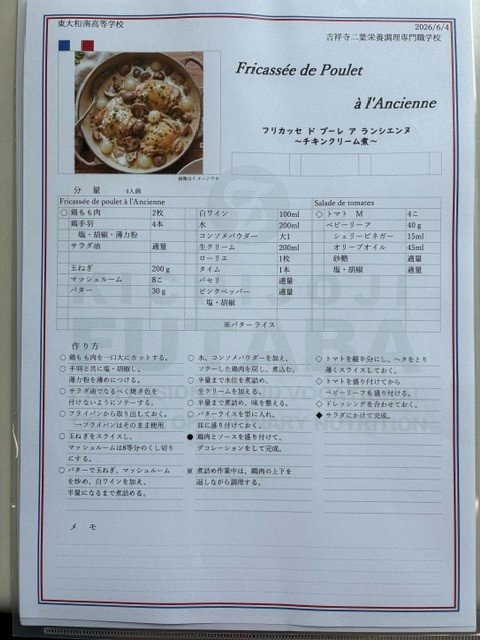 東大和南高等学校
2026/6/4
吉祥寺二葉栄養調理専門職学校
Fricassée de Poulet
à l'Ancienne
フリカッセ ド プーレ ア ランシエンヌ
～チキンクリーム煮～
画像はイメージです
分 量 4人前
Fricassee de poulet à l'Ancienne
○ 鶏もも肉 2枚
鶏手羽 4本
塩・胡椒・薄力粉
サラダ油 適量
玉ねぎ 200g
マッシュルーム 8こ
バター 30g
白ワイン 100ml
水 200ml
コンソメパウダー 大1
生クリーム 200ml
ローリエ 1枚
タイム 1本
パセリ 適量
ピンクペッパー 適量
塩・胡椒
※バターライス
Salade de tomates
◇ トマト M 4こ
ベビーリーフ 40g
シェリービネガー 15ml
オリーブオイル 45ml
砂糖 適量
塩・胡椒 適量
作り方
○ 鶏もも肉を一口大にカットする。
○ 手羽と共に塩・胡椒し、
薄力粉を薄めにつける。
○ サラダ油でなるべく焼き色を
付けないようにソテーする。
○ フライパンから取り出しておく。
→フライパンはそのまま使用
○ 玉ねぎをスライスし、
マッシュルームは8等分のくし切り
にする。
○ バターで玉ねぎ、マッシュルーム
を炒め、白ワインを加え、
半量になるまで煮詰める。
○ 水、コンソメパウダーを加え、
ソテーした鶏肉を戻し、煮込む。
○ 半量まで水位を煮詰め、
生クリームを加える。
○ 半量まで煮詰め、味を整える。
○ バターライスを型に入れ、
皿に盛り付けておく。
● 鶏肉とソースを盛り付けて、
デコレーションをして完成。
※ 煮詰め作業中は、鶏肉の上下を
返しながら調理する。
◇ トマトを縦半分にし、ヘタをとり
薄くスライスしておく。
◇ トマトを盛り付けてから
ベビーリーフも盛り付ける。
◇ ドレッシングを合わせておく。
◆ サラダにかけて完成。
メ モ